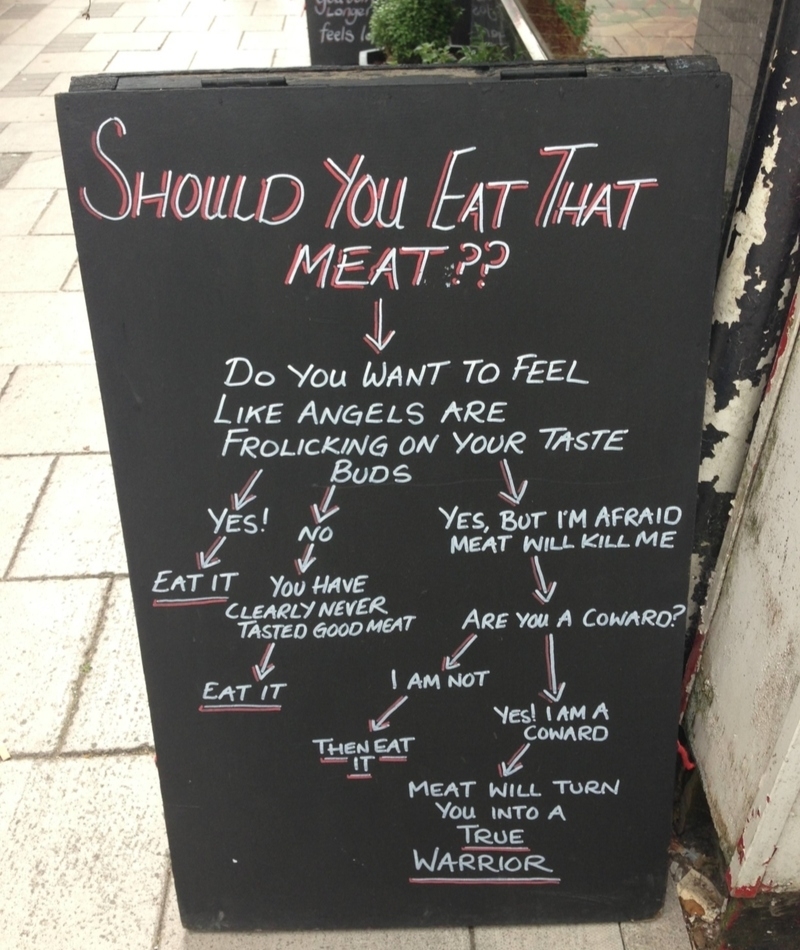 Longer
feels
SHOULD YOU EAT THAT
MEAT??
DO YOU WANT TO FEEL
LIKE ANGELS ARE
FROLICKING ON YOUR TASTE
BUDS
YES!
NO
YES, BUT I'M AFRAID
MEAT WILL KILL ME
EAT IT
YOU HAVE
CLEARLY NEVER
TASTED GOOD MEAT
EAT IT
ARE YOU A COWARD?
I AM NOT
THEN EAT
IT
YES! I AM A
COWARD
MEAT WILL TURN
YOU INTO A
TRUE
WARRIOR